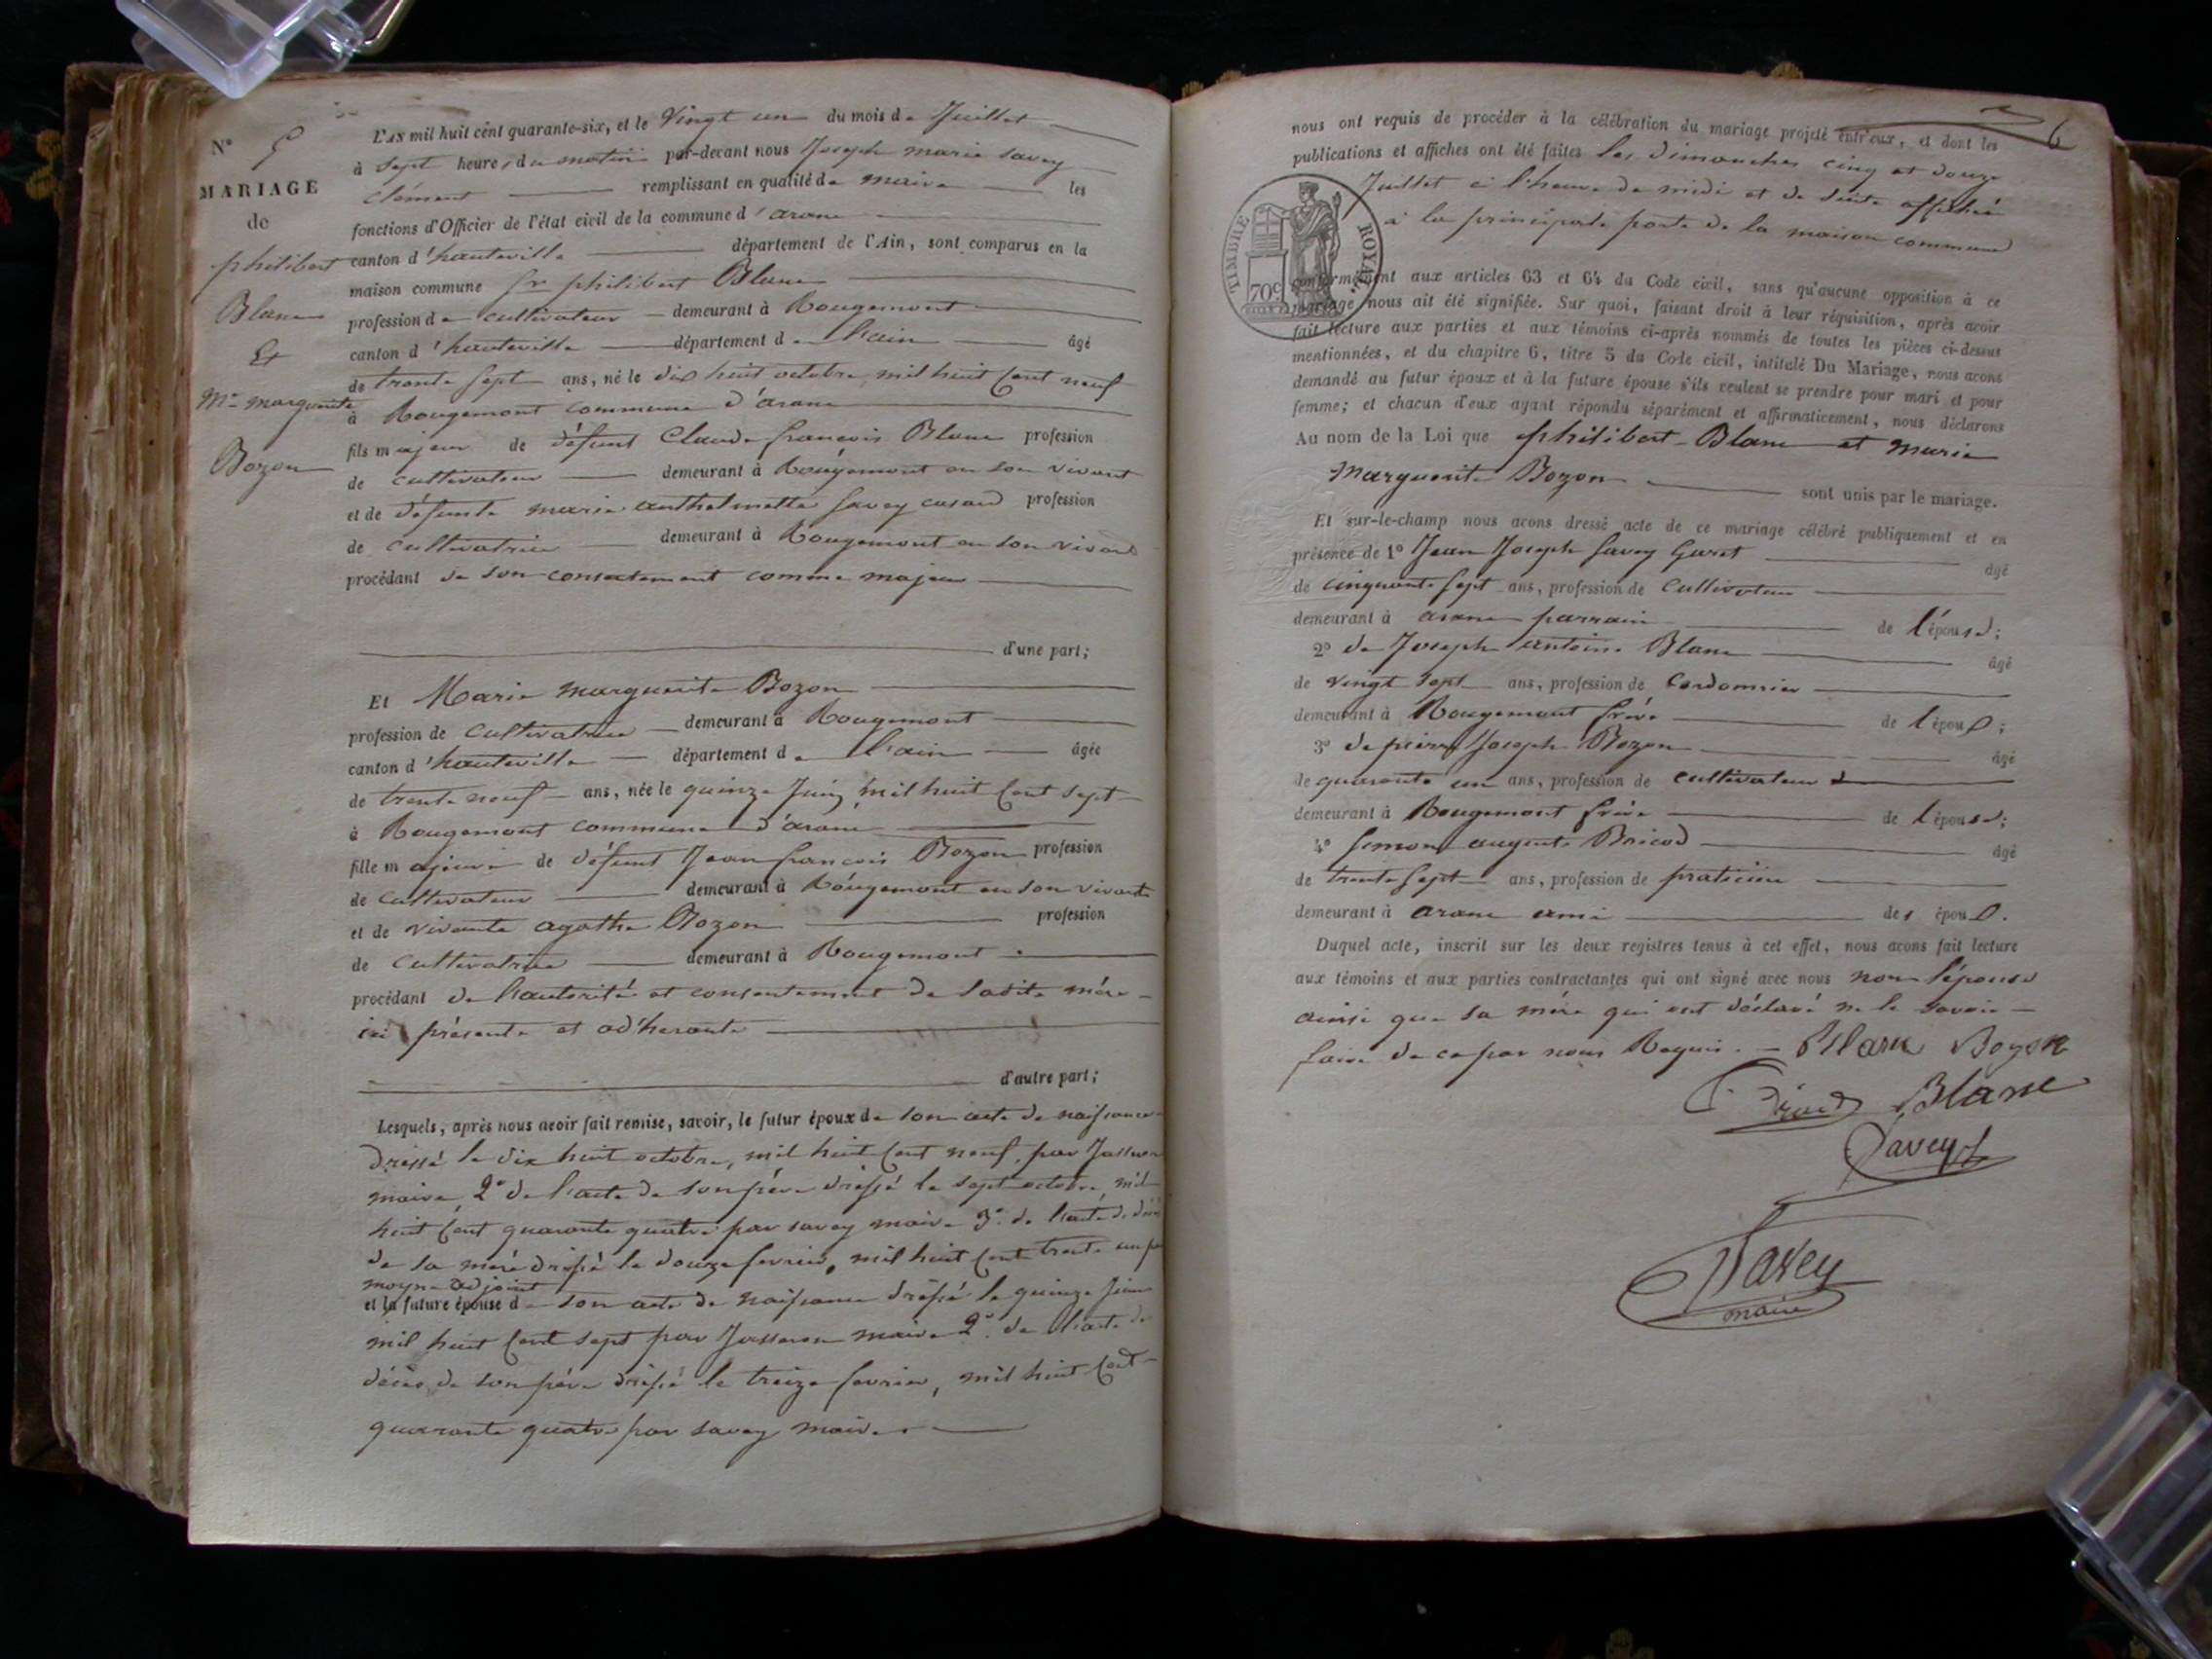 N° 5
MARIAGE
de
philibert
Blanc
Et
Mie marguerite
Bozon
L'AN mil huit cent quarante-six, et le Vingt un du mois de Juillet
à sept heures du matin par-devant nous Joseph marie savey
Clément remplissant en qualité de maire les
fonctions d'Officier de l'état civil de la commune d'arane
canton d'hauteville département de l'Ain, sont comparus en la
maison commune sr philibert Blanc
profession de cultivateur demeurant à Rougemont
canton d'hauteville département de l'ain âgé
de trente sept ans, né le dix huit octobre mil huit cent neuf
à Rougemont commune d'arane
fils majeur de défunt Claude françois Blanc profession
de cultivateur demeurant à Rougemont en son vivant
et de défunte marie anthelmette savey casard profession
de cultivatrice demeurant à Rougemont en son vivant
procédant de son consentement comme majeur
d'une part;
Et Marie marguerite Bozon
profession de cultivatrice demeurant à Rougemont
canton d'hauteville département de l'ain âgée
de trente neuf ans, née le quinze Juin mil huit cent sept
à Rougemont commune d'arane
fille majeure de défunt Jean françois Bozon profession
de cultivateur demeurant à Rougemont en son vivant
et de vivante agathe Bozon profession
de cultivatrice demeurant à Rougemont
procédant de l'autorité et consentement de ladite mère
ici présente et adhérante
d'autre part;
Lesquels, après nous avoir fait remise, savoir, le futur époux de son acte de naissance
dressé le dix huit octobre, mil huit cent neuf, par Jasseron
maire, 2° de l'acte de son père dressé le sept octobre mil
huit cent quarante quatre par savey maire 3° de l'acte de décès
de sa mère dressé le douze fevrier, mil huit cent trente un par
moyne adjoint
et la future épouse de son acte de naissance dressé le quinze juin
mil huit cent sept par Jasseron maire 2° de l'acte de
décès de son père dressé le treize fevrier, mil huit cent
quarante quatre par savey maire
6
nous ont requis de procéder à la célébration du mariage projeté entr'eux, et dont les
publications et affiches ont été faites les dimanches cinq et douze
Juillet à l'heure de midi et de suite affiché
à la principale porte de la maison commune
TIMBRE ROYAL
70c
conformément aux articles 63 et 64 du Code civil, sans qu'aucune opposition à ce
mariage nous ait été signifiée. Sur quoi, faisant droit à leur réquisition, après avoir
fait lecture aux parties et aux témoins ci-après nommés de toutes les pièces ci-dessus
mentionnées, et du chapitre 6, titre 5 du Code civil, intitulé Du Mariage, nous avons
demandé au futur époux et à la future épouse s'ils veulent se prendre pour mari et pour
femme; et chacun d'eux ayant répondu séparément et affirmativement, nous déclarons
Au nom de la Loi que philibert Blanc et marie
Marguerite Bozon sont unis par le mariage.
Et sur-le-champ nous avons dressé acte de ce mariage célébré publiquement et en
présence de 1° Jean Joseph Savey Guret âgé
de cinquante sept ans, profession de Cultivateur
demeurant à arane parrain de l'épouse;
2° de Joseph antoine Blanc âgé
de vingt sept ans, profession de Cordonnier
demeurant à Rougemont frère de l'époux;
3° de pierre Joseph Bozon âgé
de quarante un ans, profession de cultivateur
demeurant à Rougemont frère de l'épouse;
4° Simon auguste Bricod âgé
de trente sept ans, profession de praticien
demeurant à arane ami des époux.
Duquel acte, inscrit sur les deux registres tenus à cet effet, nous avons fait lecture
aux témoins et aux parties contractantes qui ont signé avec nous non l'épouse
ainsi que sa mère qui ont déclaré ne le savoir
faire de ce par nous Requis. Blanc Bozon
Blanc
Savey
Savey
maire